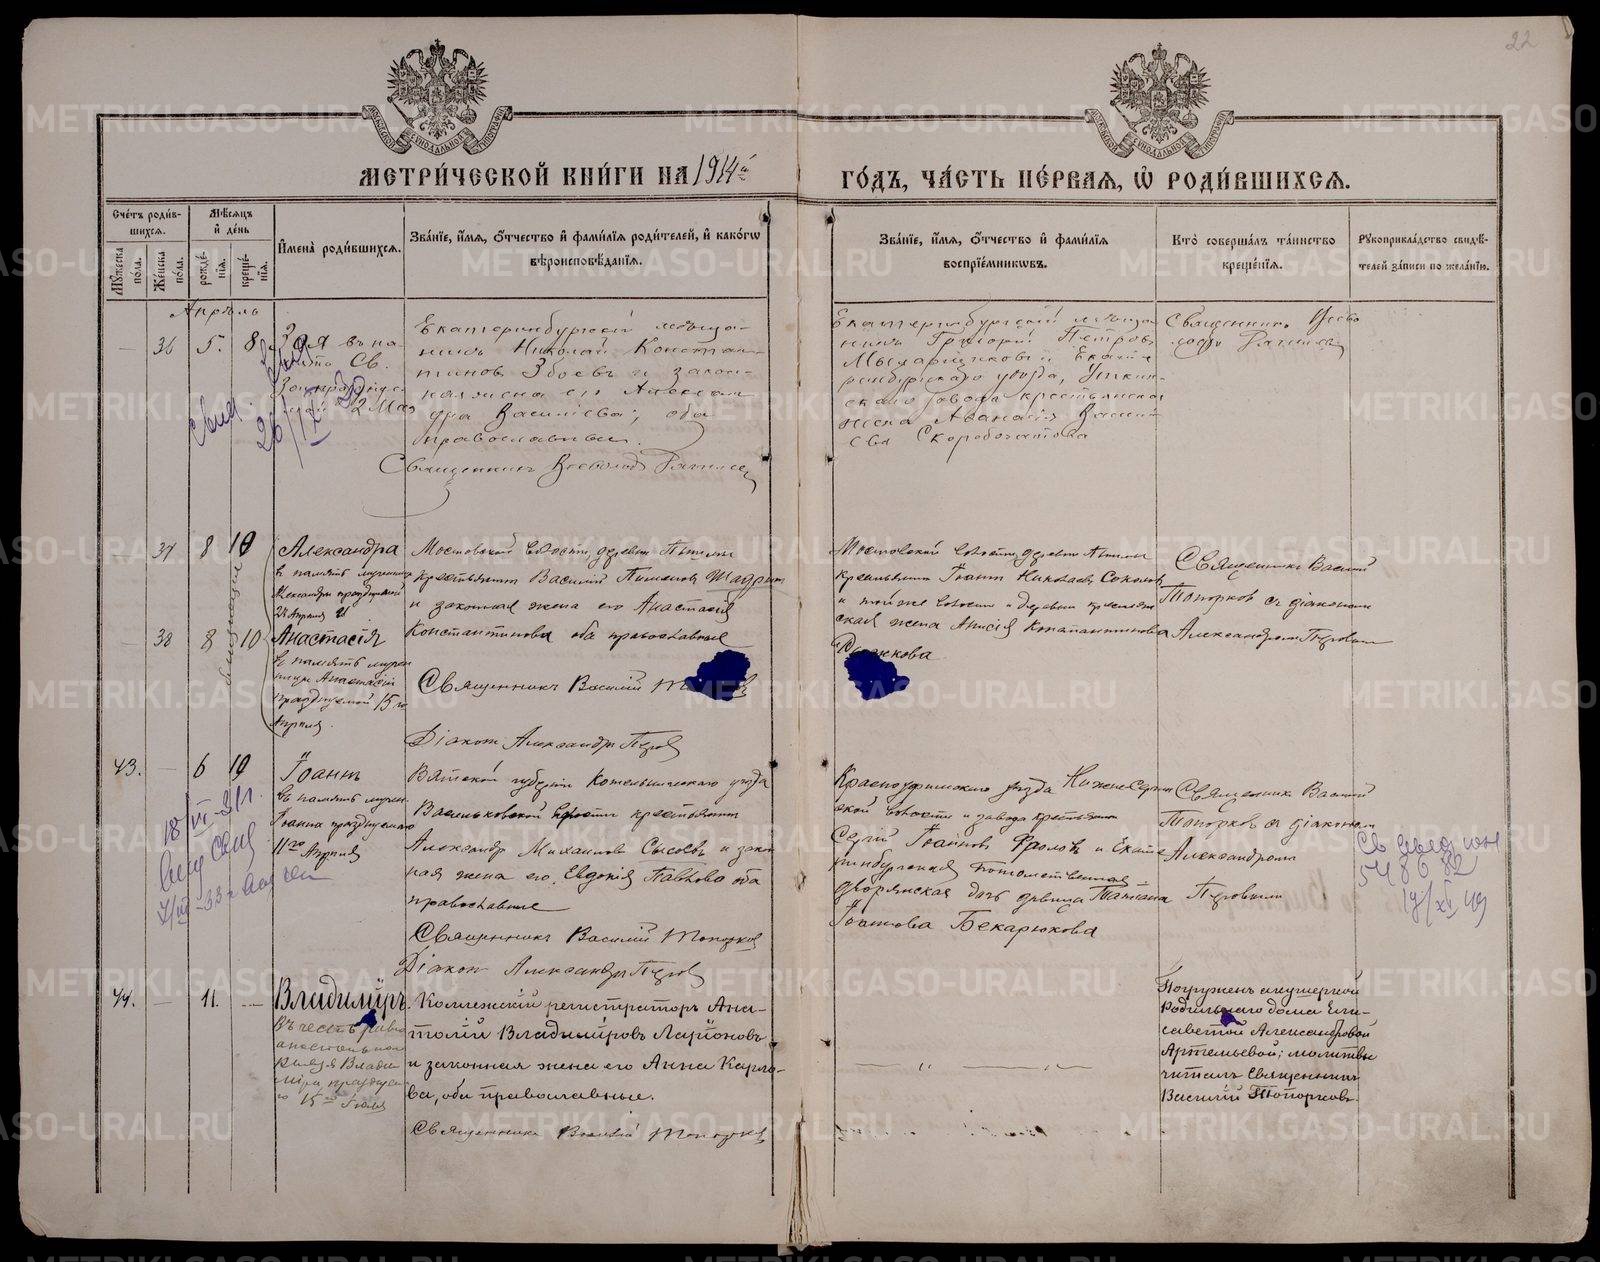 22
МОСКОВСКОЙ СѴНОДАЛЬНОЙ ТИПОГРАФІИ
МОСКОВСКОЙ СѴНОДАЛЬНОЙ ТИПОГРАФІИ
МЕТРИ́ЧЕСКОЙ КНИ́ГИ НА 1914й
ГО́ДЪ, ЧА́СТЬ ПЕ́РВАЯ, Ѡ҆ РОДИ́ВШИХСЯ.
Сче́тъ роди́в-
шихся.
Мꙋ́жеска пола.
Же́нска пола.
Мѣ́сяцъ
и҆ де́нь
рожде́-
нїя.
креще́-
нїя.
И҆мена̀ роди́вшихся.
Зва́нїе, и҆́мя, ѻ҆́тчество и҆ фами́лїя роди́телей, и҆ како́гѡ
вѣроисповѣ́данїя.
Зва́нїе, и҆́мя, ѻ҆́тчество и҆ фами́лїя
воспрїе́мниковъ.
Кто̀ соверша́лъ та́инство
креще́нїя.
Рꙋкоприкла́дство свидѣ́-
телей за́писи по жела́нїю.
Апрѣль
36 5. 8.
Зоя въ па-
мять Св.
2 Мая
Екатеринбургскій мѣща-
нинъ Николай Констан-
тиновъ Збоевъ и закон-
ная жена его Алексан-
дра Васильева, оба
православные.
Священникъ Всеволод
Екатеринбургскій мѣща-
нинъ Григорій Петровъ
Мыларщиковъ и Екате-
ринбургскаго уѣзда, Уткин-
скаго завода крестьянская
жена Аѳанасія Василь-
ева Скоробогатова
Священникъ Всево-
лодъ
26/IX
37 8 10
Александра
въ память мучен.
Александры празднуемой
21 Апрѣля
Мостовской волости, деревни Пышмы
крестьянинъ Василій Пименовъ Шадринъ
и законная жена его Анастасія
Константинова оба православные
Мостовской волости деревни Пышмы
крестьянинъ Іоаннъ Николаевъ Соколовъ
и той же волости и деревни крестьян-
ская жена Анисія Константинова
Рыжкова
Священникъ Василій
Топорковъ съ діакономъ
Александромъ Петровымъ
38 8 10
близнецы
Анастасія
въ память мучен
ицы Анастасіи
празднуемой 15 го
Апрѣля.
Священникъ Василій
Діаконъ Александръ Петровъ
43. 6 10
Іоаннъ
въ память мучен.
Іоанна празднуемаго
11го Апрѣля
Вятской губерніи Котельническаго уѣзда
Васильковской волости крестьянинъ
Александръ Михаиловъ Сысоевъ и закон
ная жена его Евдокія Павлова оба
православные
Священникъ Василій Топорковъ
Діаконъ Александръ Петровъ
Красноуфимскаго уѣзда Нижне-Серги
ской волости и завода крестьянинъ
Сергій Іоанновъ Фроловъ и Екате-
ринбургская потомственная
дворянская дочь дѣвица Татіана
Іоаннова Бекарюкова
Священникъ Василій
Топорковъ съ діакономъ
Александромъ
Петровымъ
18/VI-31г.
548682
19/XI 49
44. 11.
Владиміръ.
Въ честь равно
апостольнаго
князя Влади-
міра, празднуе-
м. 15го Іюля
Коллежскій регистраторъ Ана-
толій Владиміровъ Ларіоновъ
и законная жена его Анна Карло-
ва, оба православные.
Священникъ Василій Топорковъ
Погруженъ акушеркой
Родильнаго дома Ели-
саветой Александровой
Артемьевой; молитвы
читалъ Священникъ
Василій Топорковъ.
METRIKI.GASO-URAL.RU